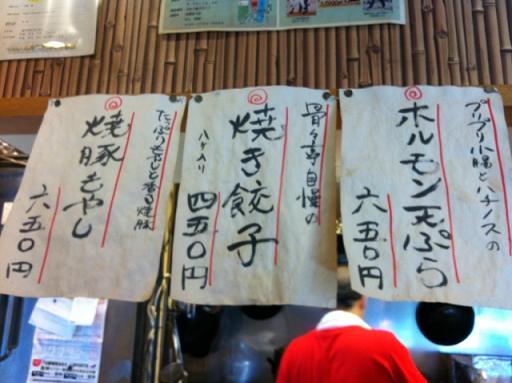 プリプリ小腸とハチノスの
ホルモン天ぷら
六五〇円
骨々亭自慢の
焼き餃子
八ケ入り
四五〇円
たっぷりもやしと香る焼豚
焼豚もやし
六五〇円